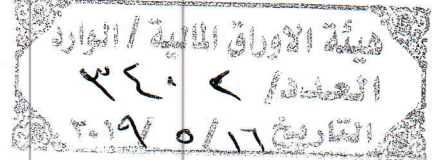 هيئة الاوراق المالية / الوارد
العدد/ ٣٤٠٢
التاريخ ١٦/ ٥ /٢٠١٩